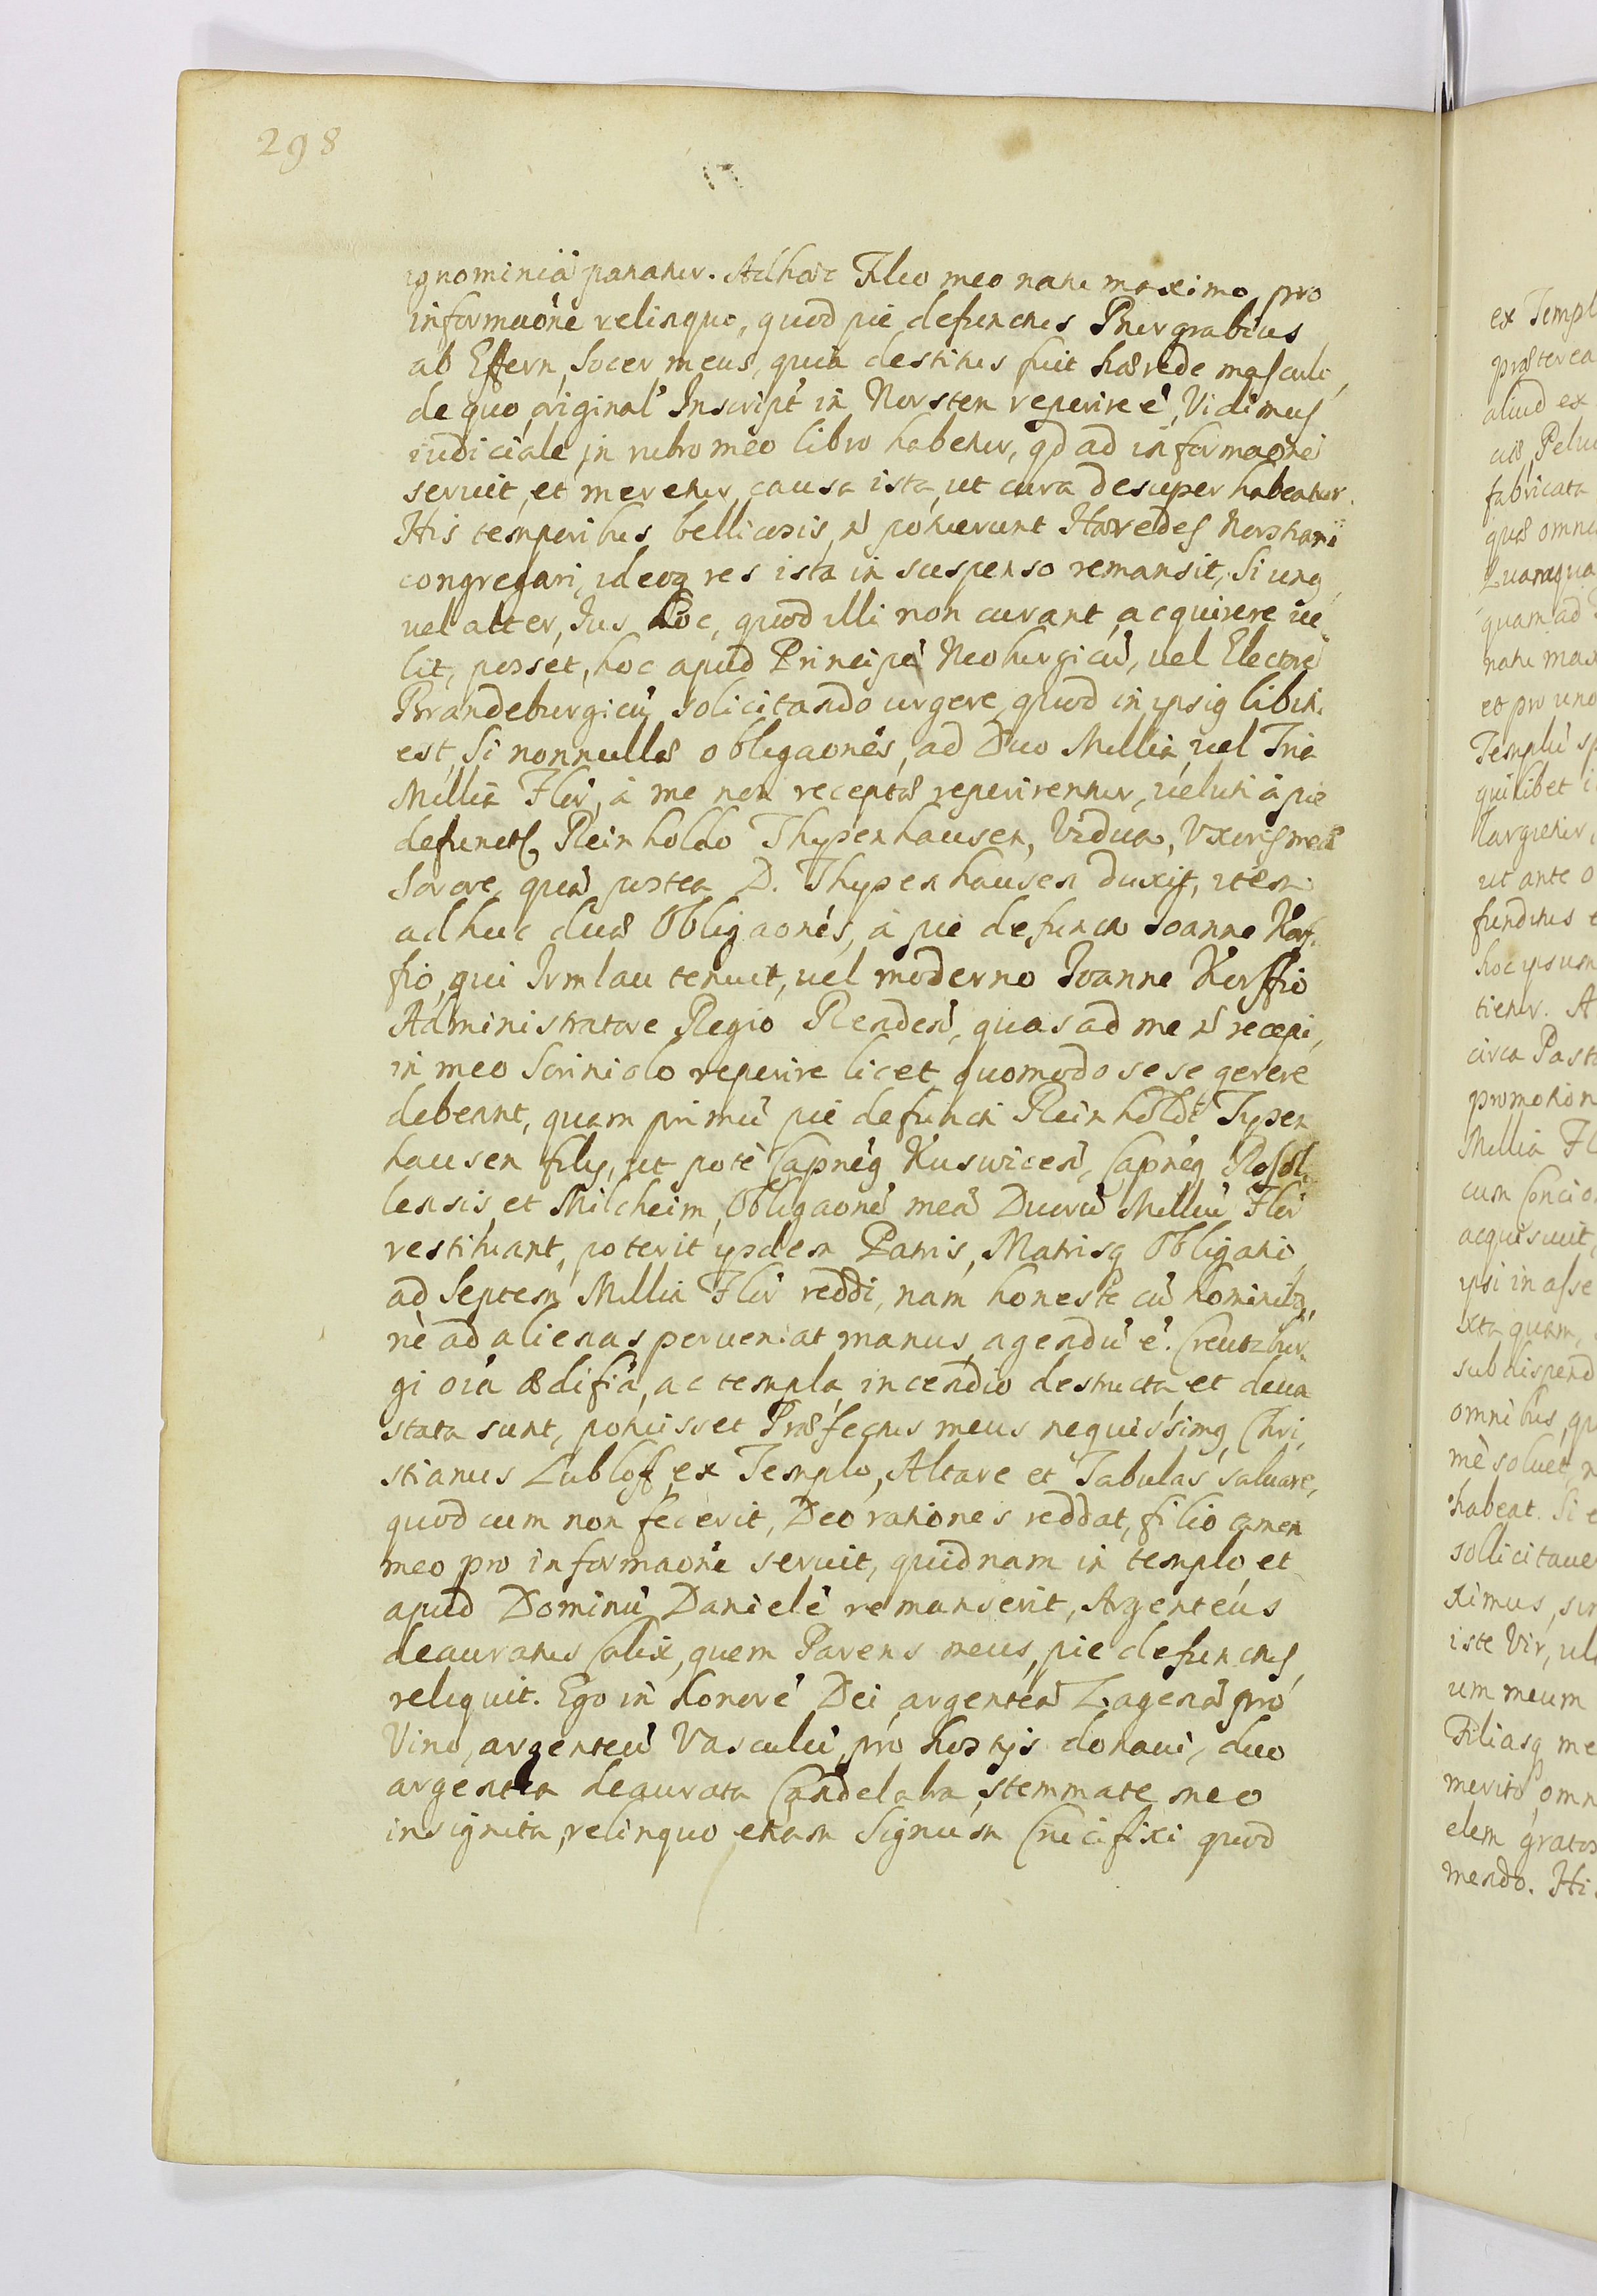 298
ignominiâ panatur. Ad haec Filio meo natu maximo pro
informaōne relinquo, quod piè defunctus Burgrabius
ab Effern, Socer meus, quia destitus fuit haerede masculo,
de quo original' Inscript' in Norsten reperire ē, Vidimus
iudiciale in rubro meo libro habetur, qd ad informaōnē
seruit, et meretur causa ista, ut cura desuper habeatur.
His temporibus bellicosis, ñ potuerunt Haeredes Norstani
congregari, ideoq res ista in suspenso remansit, Si unq
uel alter, Jus hoc, quod illi non curant, acquirere ue,
lit, posset, hoc apud Principē Neoburgicū, uel Electorē
Brandeburgicū solicitando urgere, quod in ipsiq libit.
est, Si nonnullae obligaōnes, ad Duo Millia, uel Tria
Millia Flor, à me non receptae reperirentur, ueluti à piè
defuncto Reinholdo Thysenhausen, Vidua, Uxoris meae
Sorore, quā postea D. Thysenhausen duxit, item
adhuc duae Obligaōnes, à piè defuncto Joanne Korf,
fio, qui Irmlau tenuit, uel moderno Joanne Korffio
Administratore Regio Rendeñ, quas ad me ñ recepi,
in meo Scriniolo reperire licet, quomodo sese gerere
debeant, quam primū piè defuncti Reinholdt Tysen
hausen filij, ut potè Capnēq Kuswiceñ, Capnēq Rosol,
lensis, et Milcheim, Obligaōnē meā Duorū Milliū Flor
restituant, poterit ijsdem Patris, Matrisq Obligatio,
ad Septem Millia Flor reddi, nam honestè cū hominibq,
nè ad alienas perueniat manus, agendū ē. Creutzbur,
gi oīa aedifīa, ac templa, incendio destructa, et deua
stata sunt, potuisset Praefectus meus nequissimq, Chri,
stianus Lubloff, ex Templo, Altare et Tabulas saluare,
quod cum non fecerit, Deo rationes reddat, filio tamen
meo pro informaōne seruit, quidnam in templo, et
apud Dominū Danielē remanserit, Argenteus
deauratus Calix, quem Parens meus, piè defunctus,
reliquit. Ego in honorē Dei, argenteā Lagenā pro
Vino, argenteū Vasculū pro hostijs donaui, duo
argentea deaurata Candelabra, stemmate meo
insignita, relinquo etiam Signum Crucifixi quod
ex Templ
praeterea
aliud ex
fabricata
quae omni
Quamqua
quam ad
natu max
et pro uno
Templū sp
quilibet i
largietur,
ut ante o
funditus e
hoc ipsum
tietur. A
circa Past
promotion
Millia Fl
cum Concio
acquisiuit,
ipsi in asse
ixta quam,
sub dispend
omnibus, qu
mè soluet, n
habeat. Si e
sollicitaue
ximus, sin
iste Vir, ul
um meum
Filiasq me
meritò, omn
elem gratos
mendo. Hi